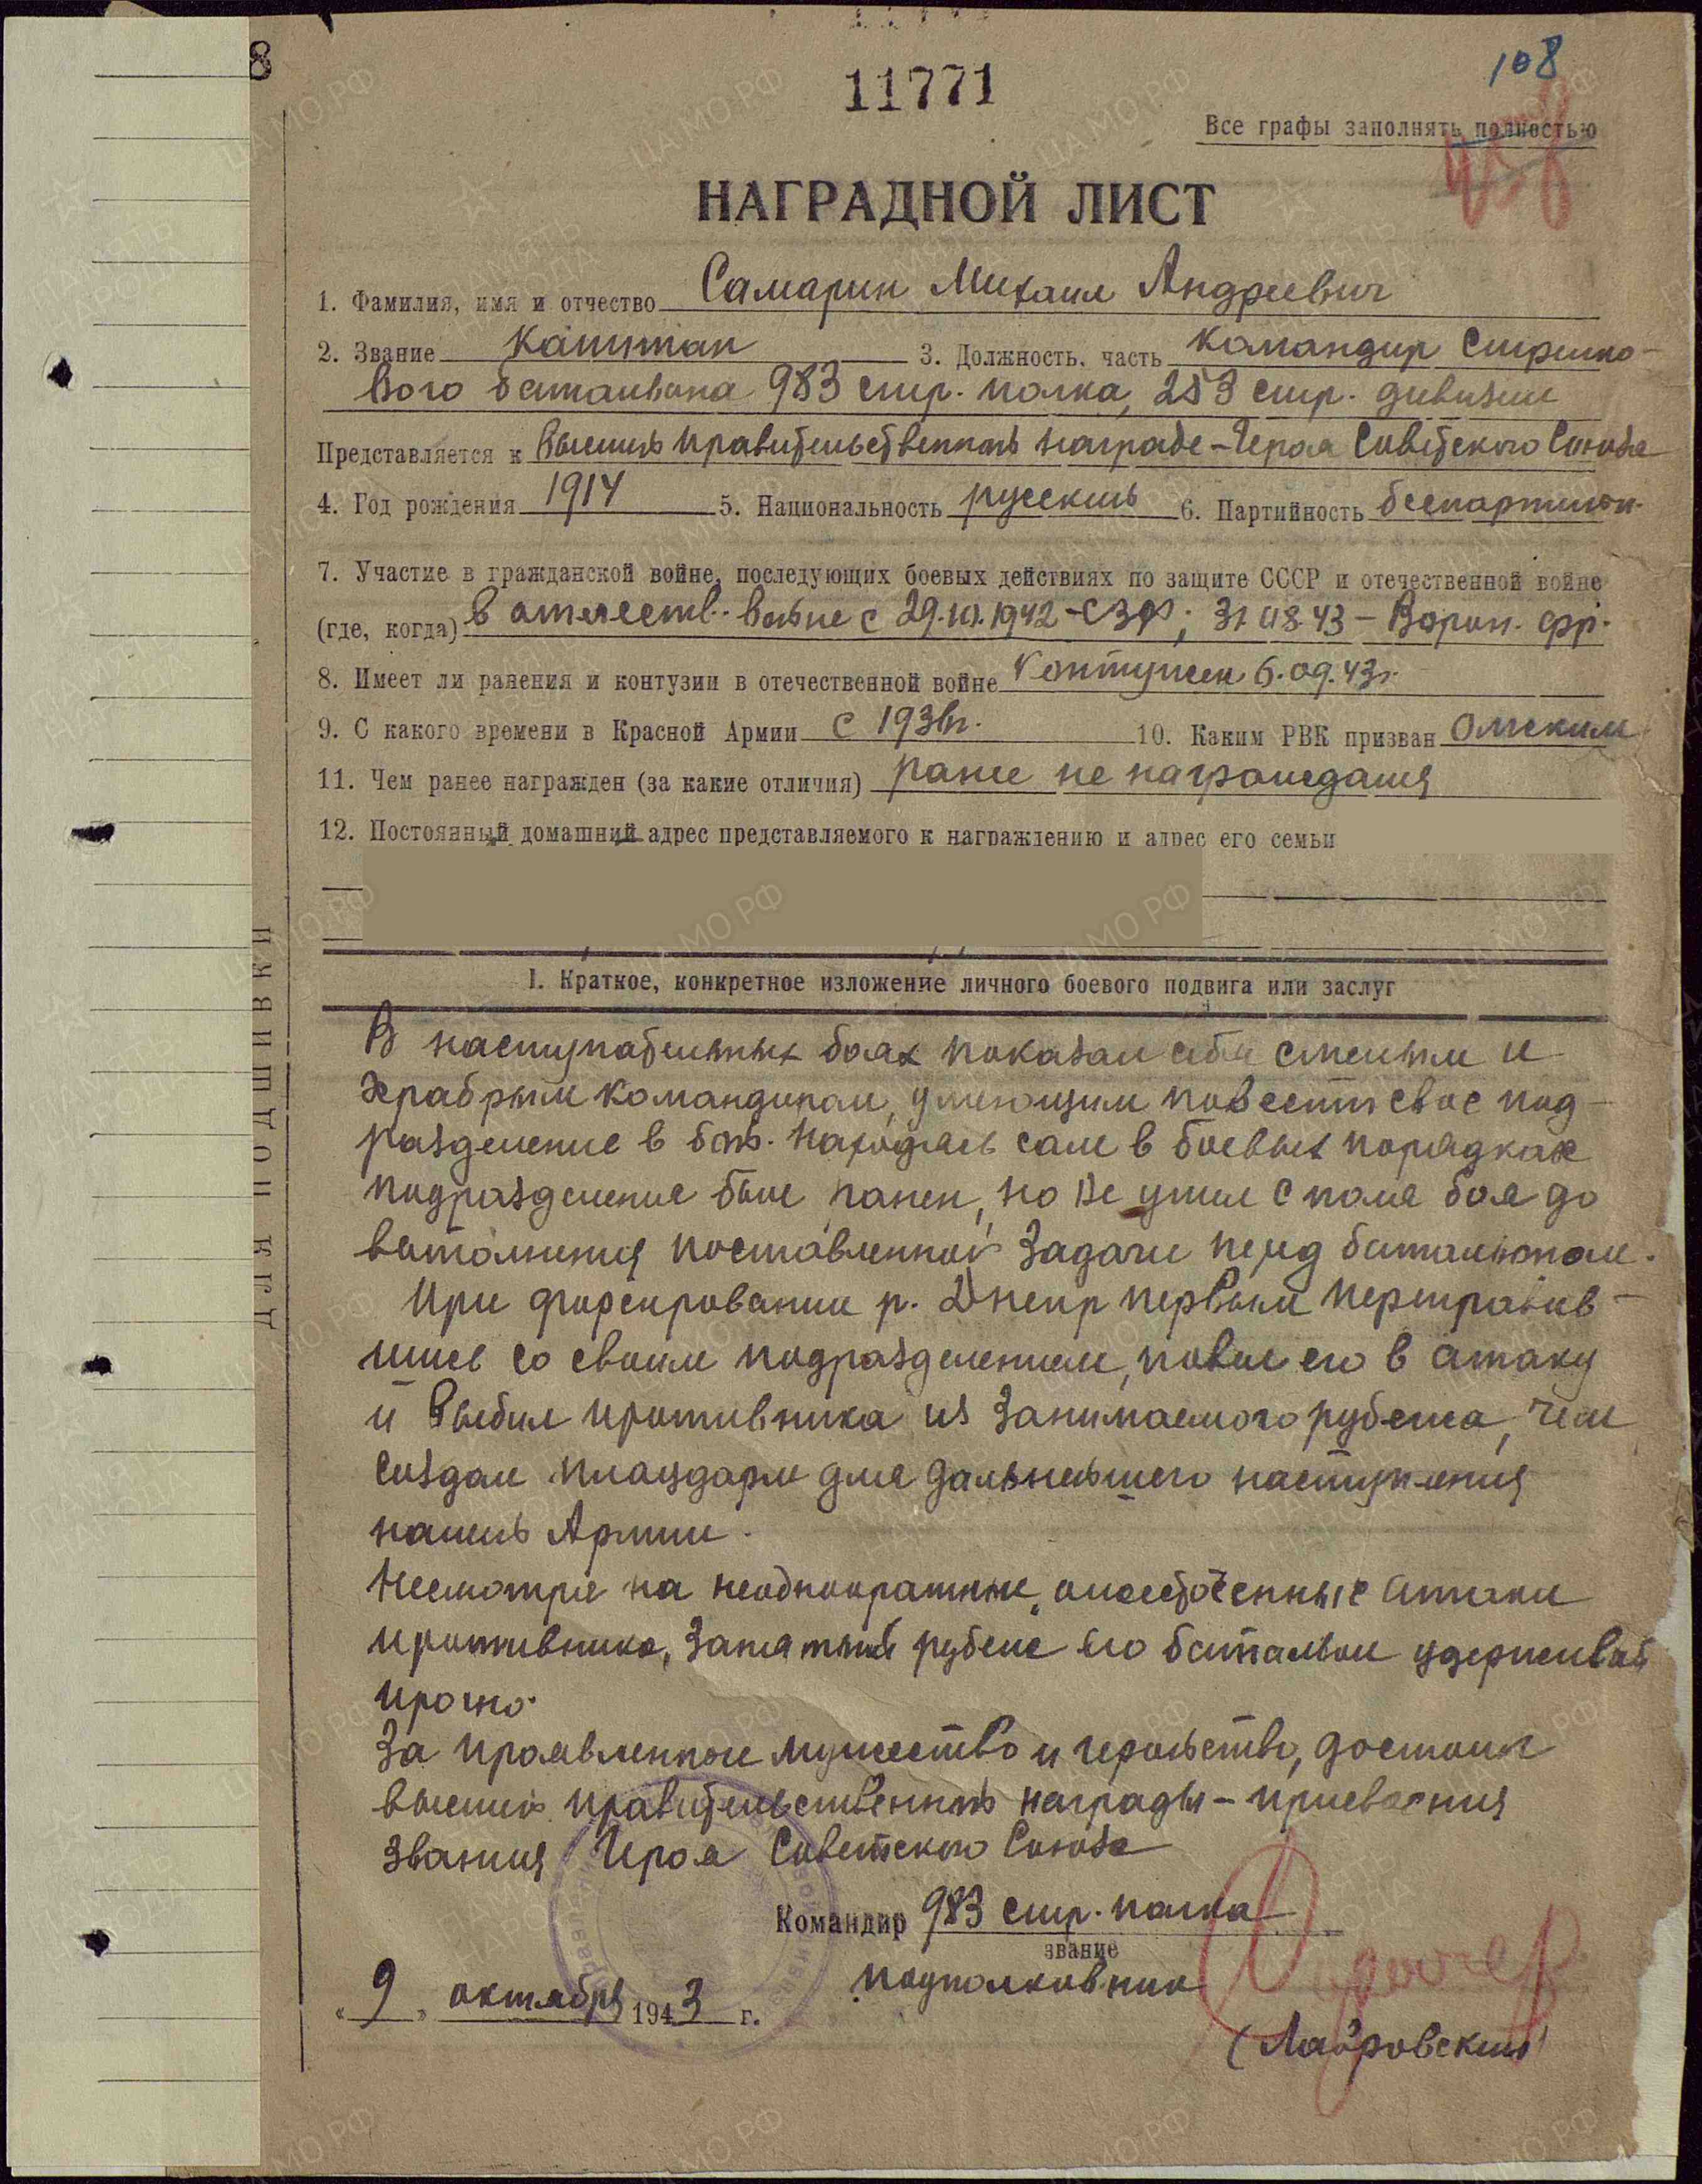 8
11771
108
Все графы заполнять полностью
НАГРАДНОЙ ЛИСТ
1. Фамилия, имя и отчество Самарин Михаил Андреевич
2. Звание Капитан 3. Должность, часть Командир Стрелко-
вого батальона 983 стр. полка, 253 стр. дивизии
Представляется к высшей правительственной награде - Героя Советского Союза
4. Год рождения 1914 5. Национальность русский 6. Партийность беспартийн.
7. Участие в гражданской войне, последующих боевых действиях по защите СССР и отечественной войне
(где, когда) в отечеств. войне с 1942 - СЗФ; 31.08.43 - Ворон. фр.
8. Имеет ли ранения и контузии в отечественной войне Контужен 6.09.43г.
9. С какого времени в Красной Армии с 1936г. 10. Каким РВК призван Омским
11. Чем ранее награжден (за какие отличия) ранее не награждался
12. Постоянный домашний адрес представляемого к награждению и адрес его семьи
I. Краткое, конкретное изложение личного боевого подвига или заслуг
В наступательных боях показал себя смелым и
храбрым командиром, умеющим повести свое под-
разделение в бой. Находясь сам в боевых порядках
подразделения был ранен, но не ушел с поля боя до
выполнения поставленной задачи перед батальоном.
При форсировании р. Днепр первым переправив-
шись со своим подразделением, повел его в атаку
и выбил противника из занимаемого рубежа, чем
создал плацдарм для дальнейшего наступления
нашей Армии.
Несмотря на неоднократные, ожесточенные атаки
противника, занятый рубеж его батальон удерживал
прочно.
За проявленное мужество и геройство, достоин
высшей правительственной награды - присвоения
звания Героя Советского Союза
Командир 983 стр. полка
звание
подполковник
"9" октября 1943 г.
(Лавровский)
ДЛЯ ПОДШИВКИ
ЦАМО РФ
ПАМЯТЬ НАРОДА